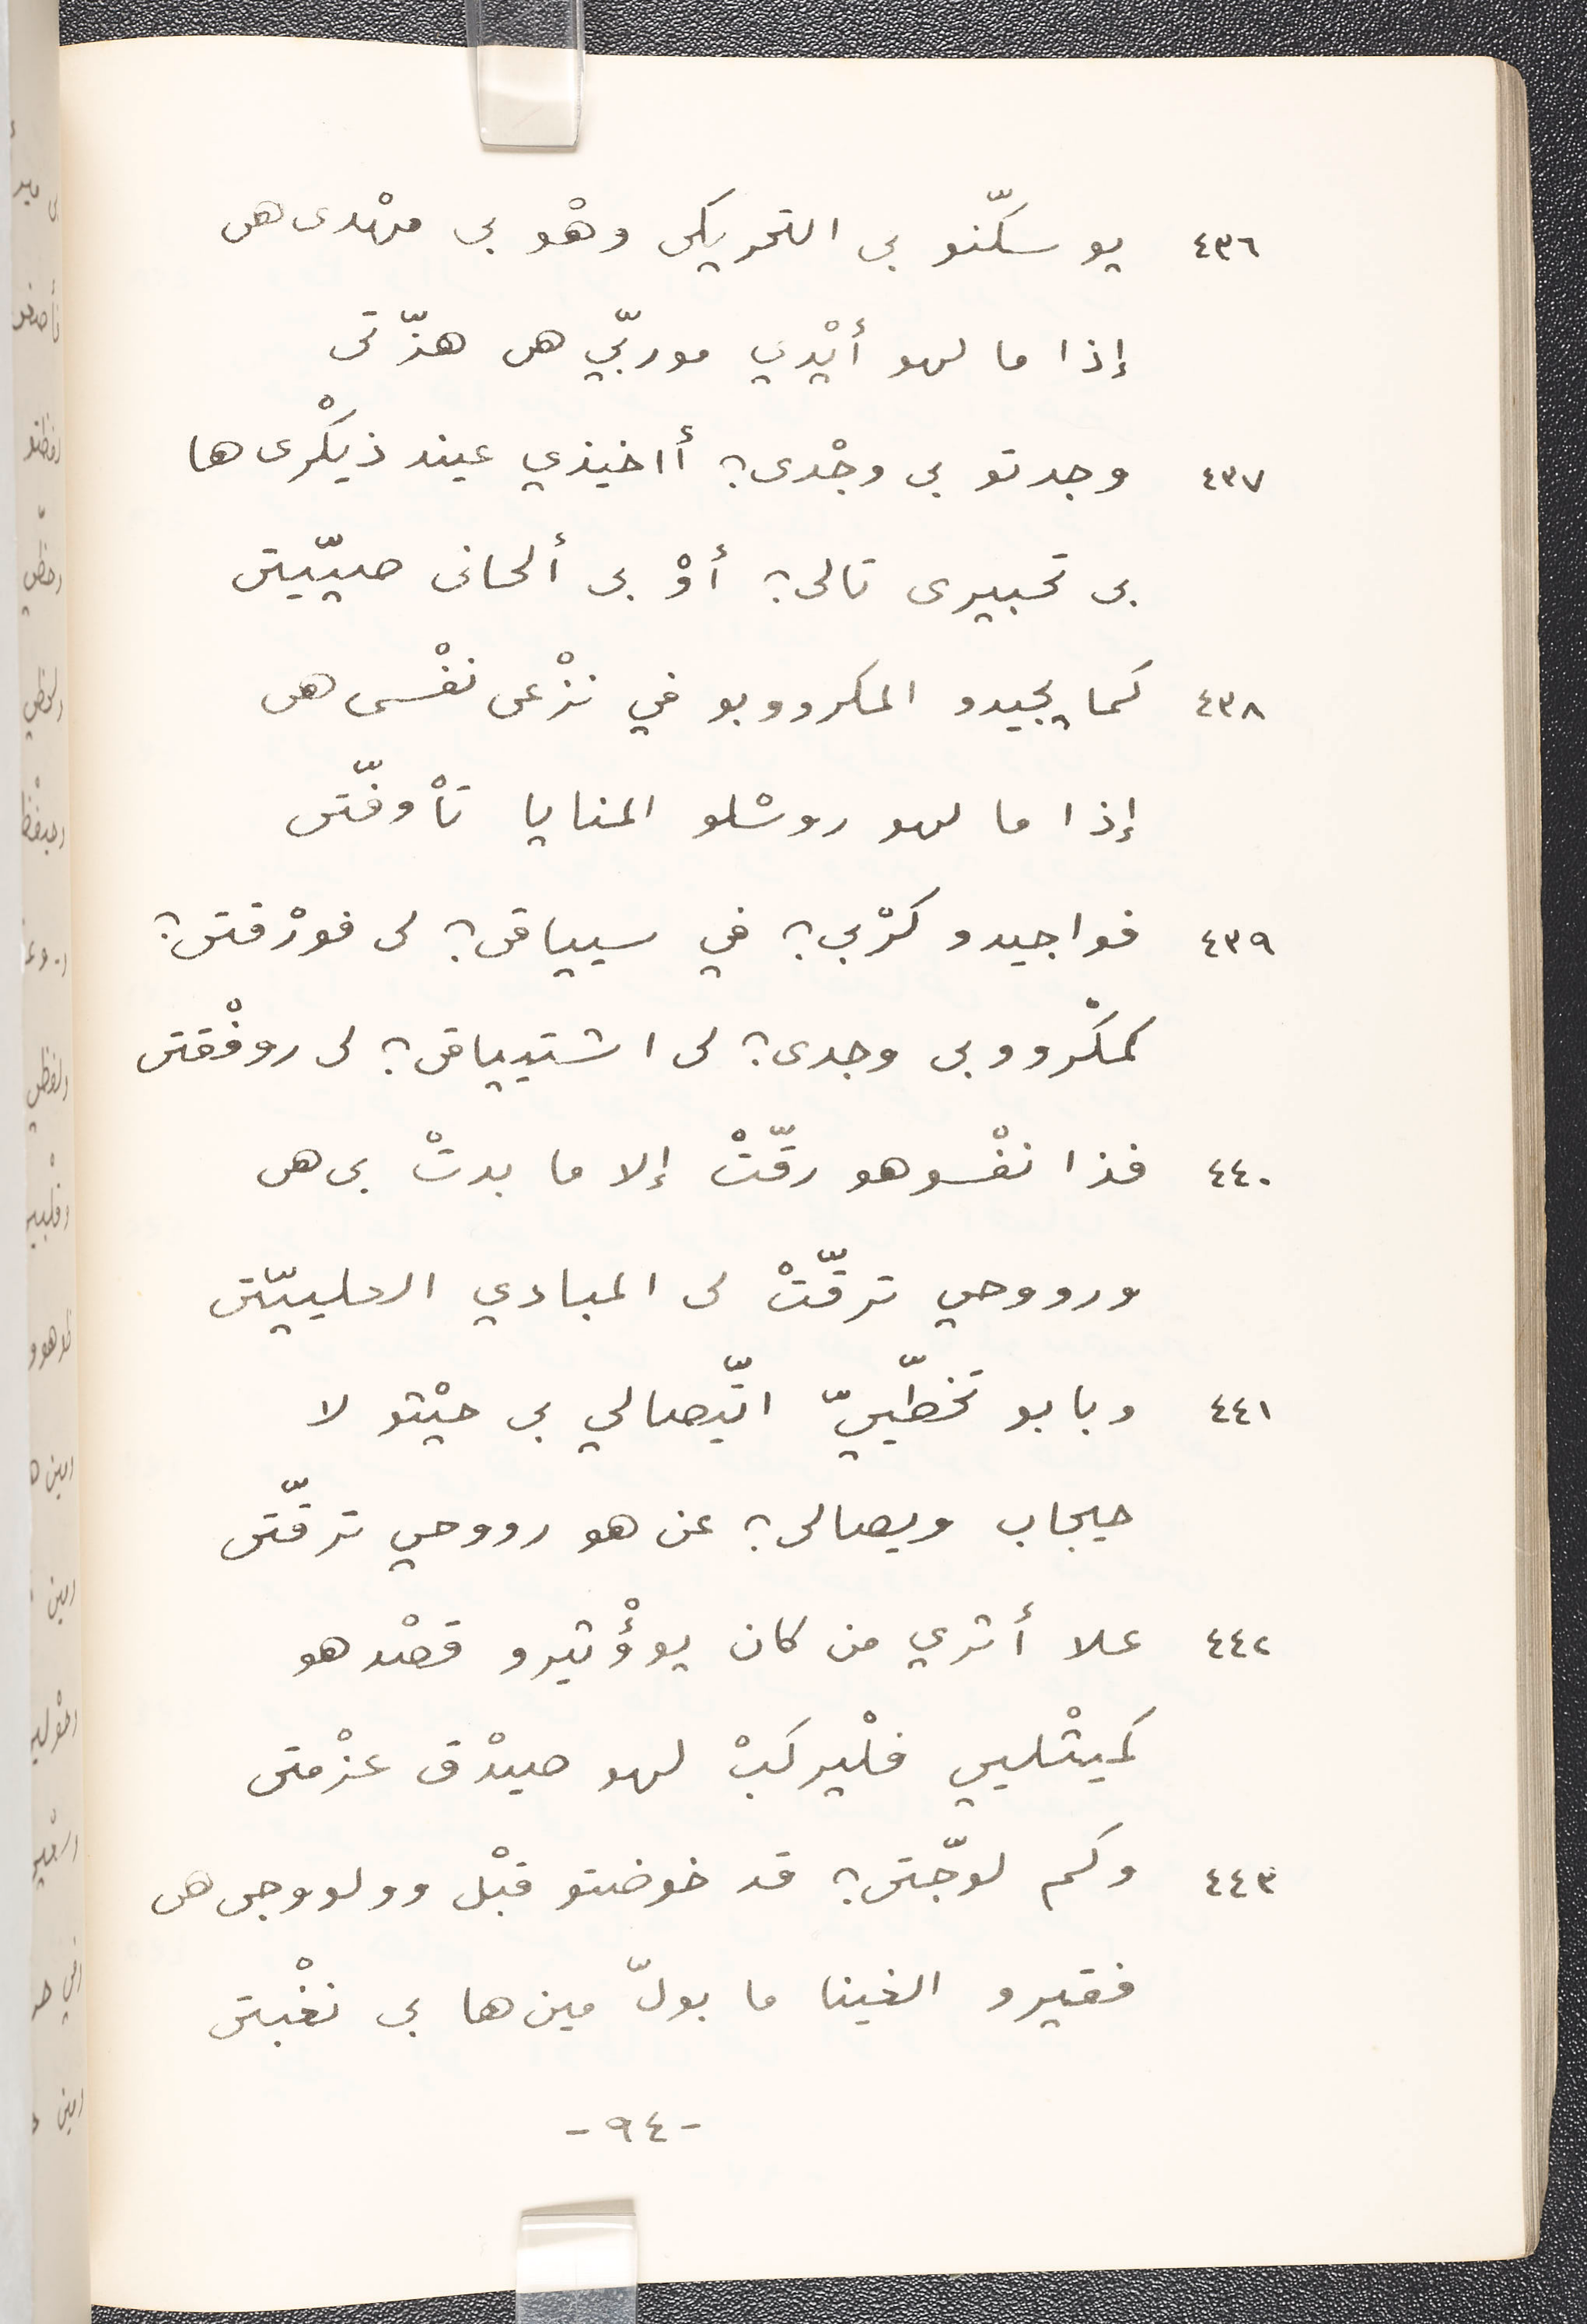 ٤٣٦ يوسكّنو بى التحريكى وهْو بى مهْدى هى
إذا ما لهو أيْدي موربّي هى هزّتى
٤٣٧ وجدتو بى وجْدى؟ أاخيذي عيند ذيكْرى ها
بى تحبيرى تالى؟ أوْ بى ألحانى صييّيتى
٤٣٨ كما يجيدو المكرووبو في نزْعى نفْسى هى
إذا ما لهو روسْلو المنايا تأوفّتى
٤٣٩ فواجيدو كرْبى؟ في سيياقى؟ لى فورْقتى؟
كمكْرووبى وجدى؟ لى اشتيياقى؟ لى روفْقتى
٤٤٠ فذا نفْسوهو رقّتْ إلا ما بدتْ بى هى
ورووحي ترقّتْ لى المبادي العلييّتى
٤٤١ وبابو تخطّييّ اتّيصالي بى حيْتو لا
حيجاب ويصالى؟ عن هو رووحي ترقّتى
٤٤٢ علا أثري من كان يوؤْثيرو قصْدهو
كميثْليي فلْيركبْ لهو صيدْق عزْمتى
٤٤٣ وكم لوجّتى؟ قد خوضتو قبْل وولووجى هى
فقيرو الغينا ما بولّ مين ها بى نغْبتى
-٩٤-